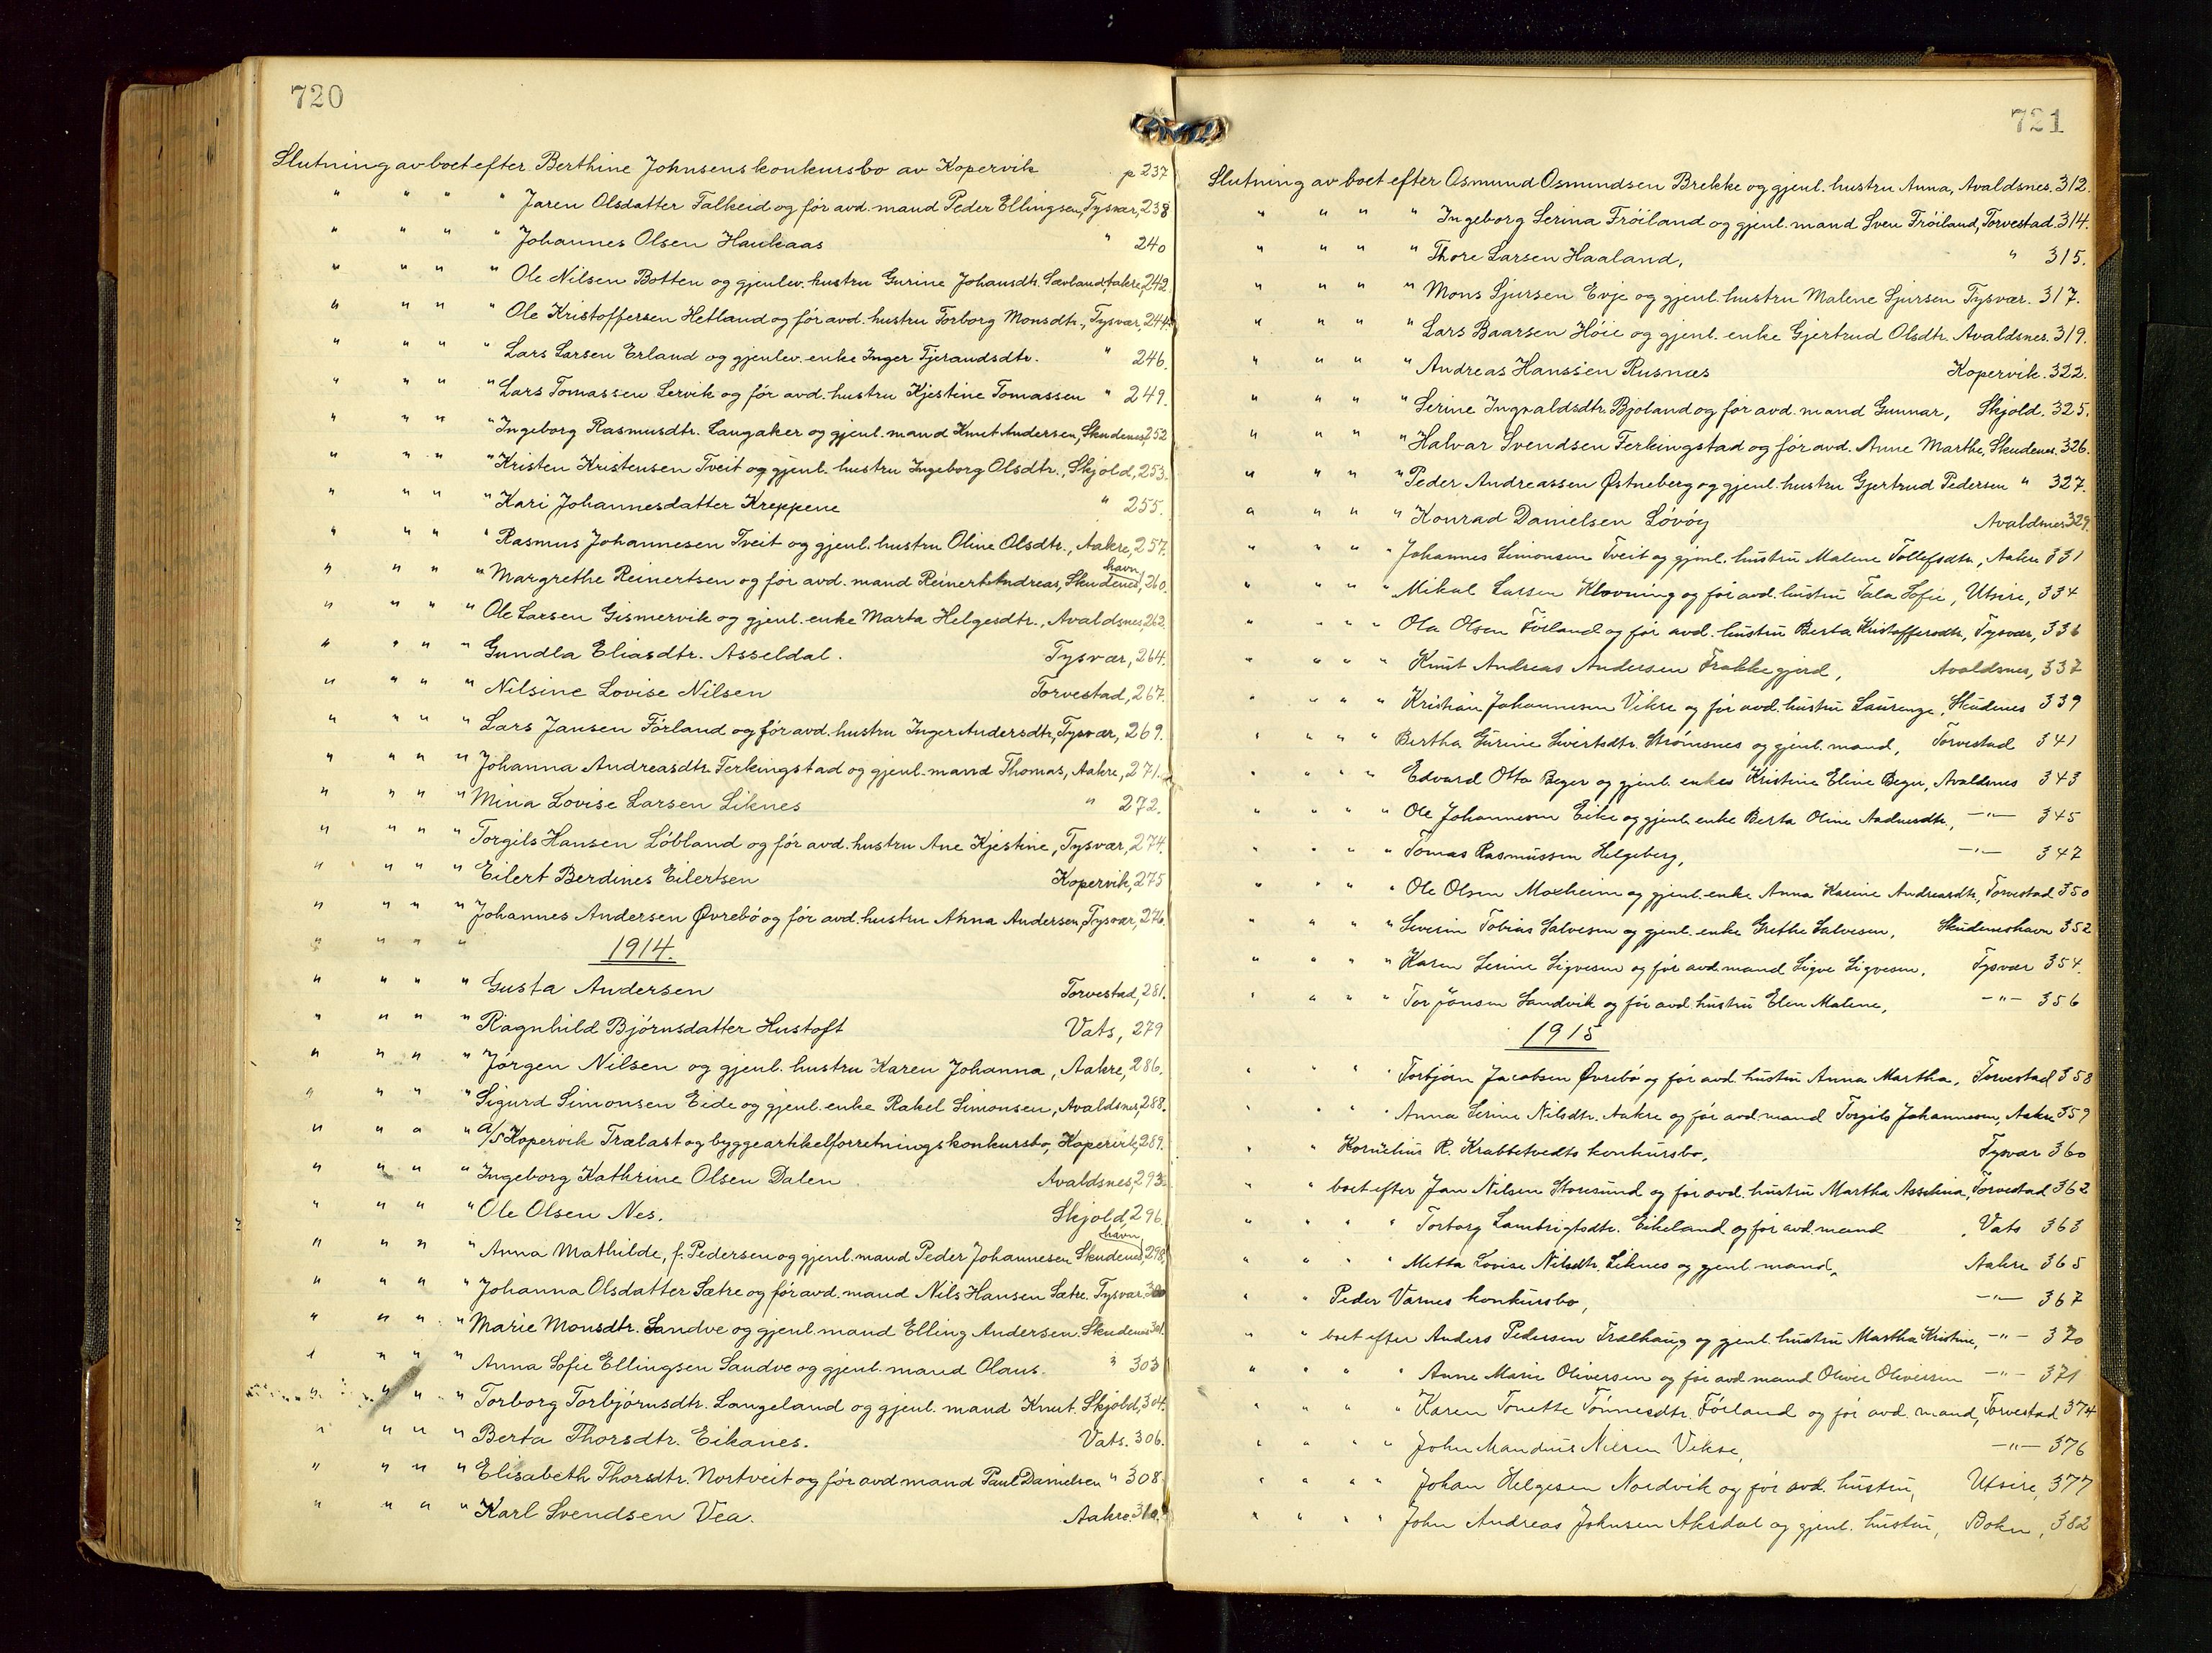 720
Slutning av boet efter Berthine Johnsens konkursbo av Kopervik p 237
" " " " Jaren Olsdatter Falkeid og før avd. mand Peder Ellingsen, Tysvær, 238
" " " " Johannes Olsen Haukaas " 240
" " " " Ole Nilsen Botten og gjenlev. hustru Gurine Johansdtr. Sævland, Aakre, 242
" " " " Ole Kristoffersen Hetland og før avd. hustru Torborg Monsdtr., Tysvær, 244.
" " " " Lars Larsen Erland og gjenlev. enke Inger Tjerandsdtr. " 246.
" " " " Lars Tomassen Lervik og før avd. hustru Kjestine Tomassen " 249.
" " " " Ingeborg Rasmusdtr. Langaker og gjenl. mand Knut Andersen, Skudenes, 252
" " " " Kristen Kristensen Tveit og gjenl. hustru Ingeborg Olsdtr., Skjold, 253.
" " " " Kari Johannesdatter Kreppene " 255.
" " " " Rasmus Johannesen Tveit og gjenl. hustru Oline Olsdtr., Aakre, 257.
" " " " Margrethe Reinertsen og før avd. mand Reinert Andreas, Skudeneshavn, 260.
" " " " Ole Larsen Gismervik og gjenl. enke Marta Helgesdtr., Avaldsnes, 262.
" " " " Gundla Eliasdtr. Asseldal. Tysvær, 264.
" " " " Nilsine Lovise Nilsen Torvestad, 267.
" " " " Lars Jansen Førland og før avd. hustru Inger Andersdtr, Tysvær, 269.
" " " " Johanna Andreasdtr. Ferkingstad og gjenl. mand Thomas, Aakre, 271.
" " " " Mina Lovise Larsen Liknes " 272.
" " " " Torgils Hansen Løbland og før avd. hustru Ane Kjestine, Tysvær, 274.
" " " " Eilert Berdines Eilertsen Kopervik, 275
" " " " Johannes Andersen Øvrebø og før avd. hustru Anna Andersen, Tysvær, 276.
" " " " 1914.
" " " " Gusta Andersen Torvestad, 281.
" " " " Ragnhild Bjørnsdatter Hustoft Vats, 279
" " " " Jørgen Nilsen og gjenl. hustru Karen Johanna, Aakre, 286.
" " " " Sigurd Simonsen Eide og gjenl. enke Rakel Simonsen, Avaldsnes, 288.
" " " " A/S Kopervik Trælast og byggeartikelforretnings konkursbo, Kopervik, 289.
" " " " Ingeborg Kathrine Olsen Dalen Avaldsnes, 293.
" " " " Ole Olsen Nes. Skjold, 296.
" " " " Anna Mathilde, f. Pedersen og gjenl. mand Peder Johannesen Skudeneshavn, 298.
" " " " Johanna Olsdatter Sætre og før avd. mand Nils Hansen Sætre. Tysvær. 300
" " " " Marie Monsdtr. Sandve og gjenl. mand Elling Andersen. Skudenes 301.
" " " " Anna Sofie Ellingsen Sandve og gjenl. mand Olaus. " 303
" " " " Torborg Torbjørnsdtr. Langeland og gjenl. mand Knut. Skjold, 304.
" " " " Berta Thorsdtr. Eikanes. Vats. 306.
" " " " Elisabeth Thorsdtr. Nortveit og før avd mand Paul Danielsen " 308.
" " " " Karl Svendsen Vea. Aakre. 310.
721
Slutning av boet efter Osmund Osmundsen Brekke og gjenl. hustru Anna, Avaldsnes. 312.
" " " " Ingeborg Serina Frøiland og gjenl. mand Sven Frøiland, Torvestad. 314.
" " " " Thore Larsen Haaland, " 315.
" " " " Mons Sjursen Evje og gjenl. hustru Malene Sjursen Tysvær. 317.
" " " " Lars Baarsen Høie og gjenl. enke Gjertrud Olsdtr. Avaldsnes. 319.
" " " " Andreas Hanssen Rusnæs Kopervik. 322.
" " " " Serine Ingvaldsdtr. Bjoland og før avd. mand Gunnar, Skjold. 325.
" " " " Halvar Svendsen Ferkingstad og før avd. Anne Marthe, Skudenes. 326.
" " " " Peder Andreassen Østneberg og gjenl. hustru Gjertrud Pedersen " 327.
" " " " Konrad Danielsen Løvøy Avaldsnes 329.
" " " " Johannes Simonsen Tveit og gjenl. hustru Malene Tollefsdtr, Aakre 331
" " " " Mikal Larsen Klovning og før avd. hustru Tala Sofie, Utsire, 334
" " " " Ola Olsen Førland og før avd. hustru Berta Kristoffersdtr, Tysvær, 336
" " " " Knut Andreas Andersen Frakkegjerd, Avaldsnes, 337
" " " " Kristian Johannesen Vikre og før avd. hustru Laurenze, Skudenes 339
" " " " Bertha Gurine Sivertsdtr. Strømsnes og gjenl. mand, Torvestad 341
" " " " Edvard Otto Beger og gjenl. enkes Kristine Eline Beger, Avaldsnes 343
" " " " Ole Johannesen Eike og gjenl. enke Berta Oline Aadnesdtr, —"— 345
" " " " Tomas Rasmussen Helgeberg, —"— 347
" " " " Ole Olsen Moxheim og gjenl. enke Anna Karine Andreasdtr, Torvestad 350
" " " " Severin Tobias Salvesen og gjenl. enke Grethe Salvesen, Skudeneshavn 352
" " " " Karen Serine Sigvesen og før avd. mand Sigve Sigvesen, Tysvær 354.
" " " " Tor Jonsen Sandvik og før avd. hustru Elen Malene, —"— 356
1915
" " " " Torbjørn Jacobsen Øvrebø og før avd. hustru Anna Martha, Torvestad 358
" " " " Anna Serine Nilsdtr. Aakre og før avd. mand Torgils Johannesen, Aakre 359
" " Kornelius R. Krabbetvedts konkursbo, Tysvær 360
" " boet efter Jan Nilsen Storesund og før avd. hustru Martha Asseline, Torvestad 362
" " " " Torborg Lambrigtsdtr. Eikeland og før avd. mand, Vats 363
" " " " Metta Lovise Nilsdtr. Liknes og gjenl. mand, Aakre 365
" " Peder Varnes konkursbo, —"— 367
" " boet efter Anders Pedersen Trælhaug og gjenl. hustru Martha Kristine, —"— 370
" " " " Anne Marie Oliversen og før avd mand Oliver Oliversen —"— 371
" " " " Karen Tonette Tønnesdtr. Førland og før avd. mand, Torvestad 374
" " " " John Mandius Nilsen Vikse, —"— 376
" " " " Johan Helgesen Nordvik og før avd. hustru, Utsire, 377
" " " " John Andreas Johnsen Aksdal og gjenl. hustru, Bokn, 382